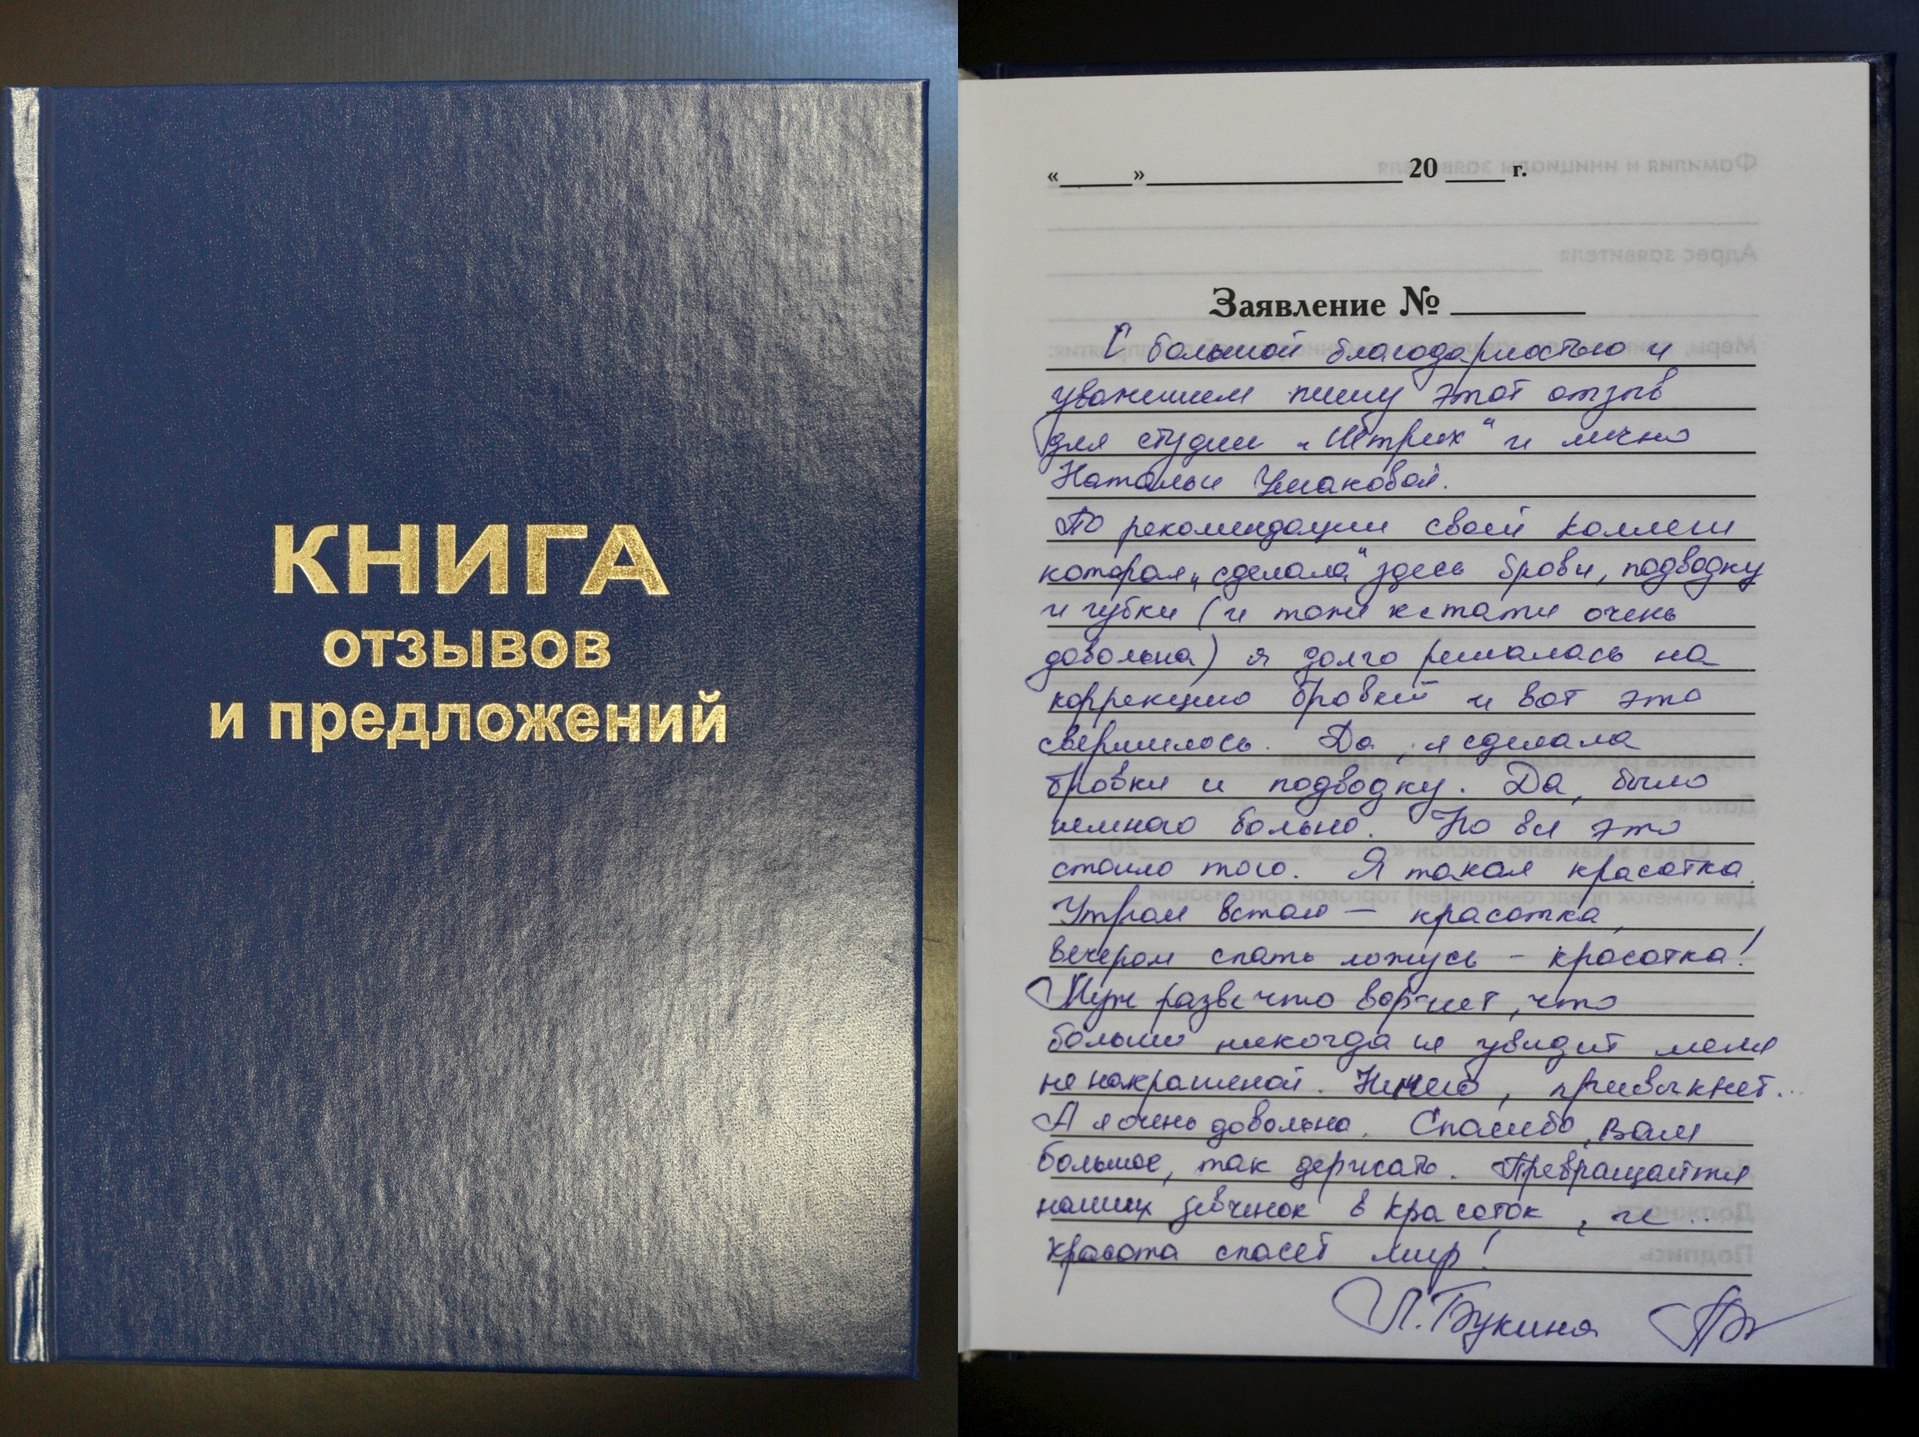 КНИГА
отзывов
и предложений
« » 20 г.
Заявление №
С большой благодарностью и
уважением пишу этот отзыв
для студии "Штрих" и лично
Натальи Ушаковой.
По рекомендации своей коллеги
которая "сделала" здесь брови, подводку
и губки (и тоже кстати очень
довольна) я долго решалась на
коррекцию бровей и вот это
свершилось. Да, я сделала
бровки и подводку. Да, было
немного больно. Но всё это
стоило того. Я такая красотка.
Утром встаю – красотка,
вечером спать ложусь – красотка!
Муж разве что ворчит, что
больше никогда не увидит меня
не накрашеной. Ничего, привыкнет...
А я очень довольна. Спасибо Вам
большое, так держать. Превращайте
наших девченок в красоток, и...
красота спасёт мир!
Л. Букина